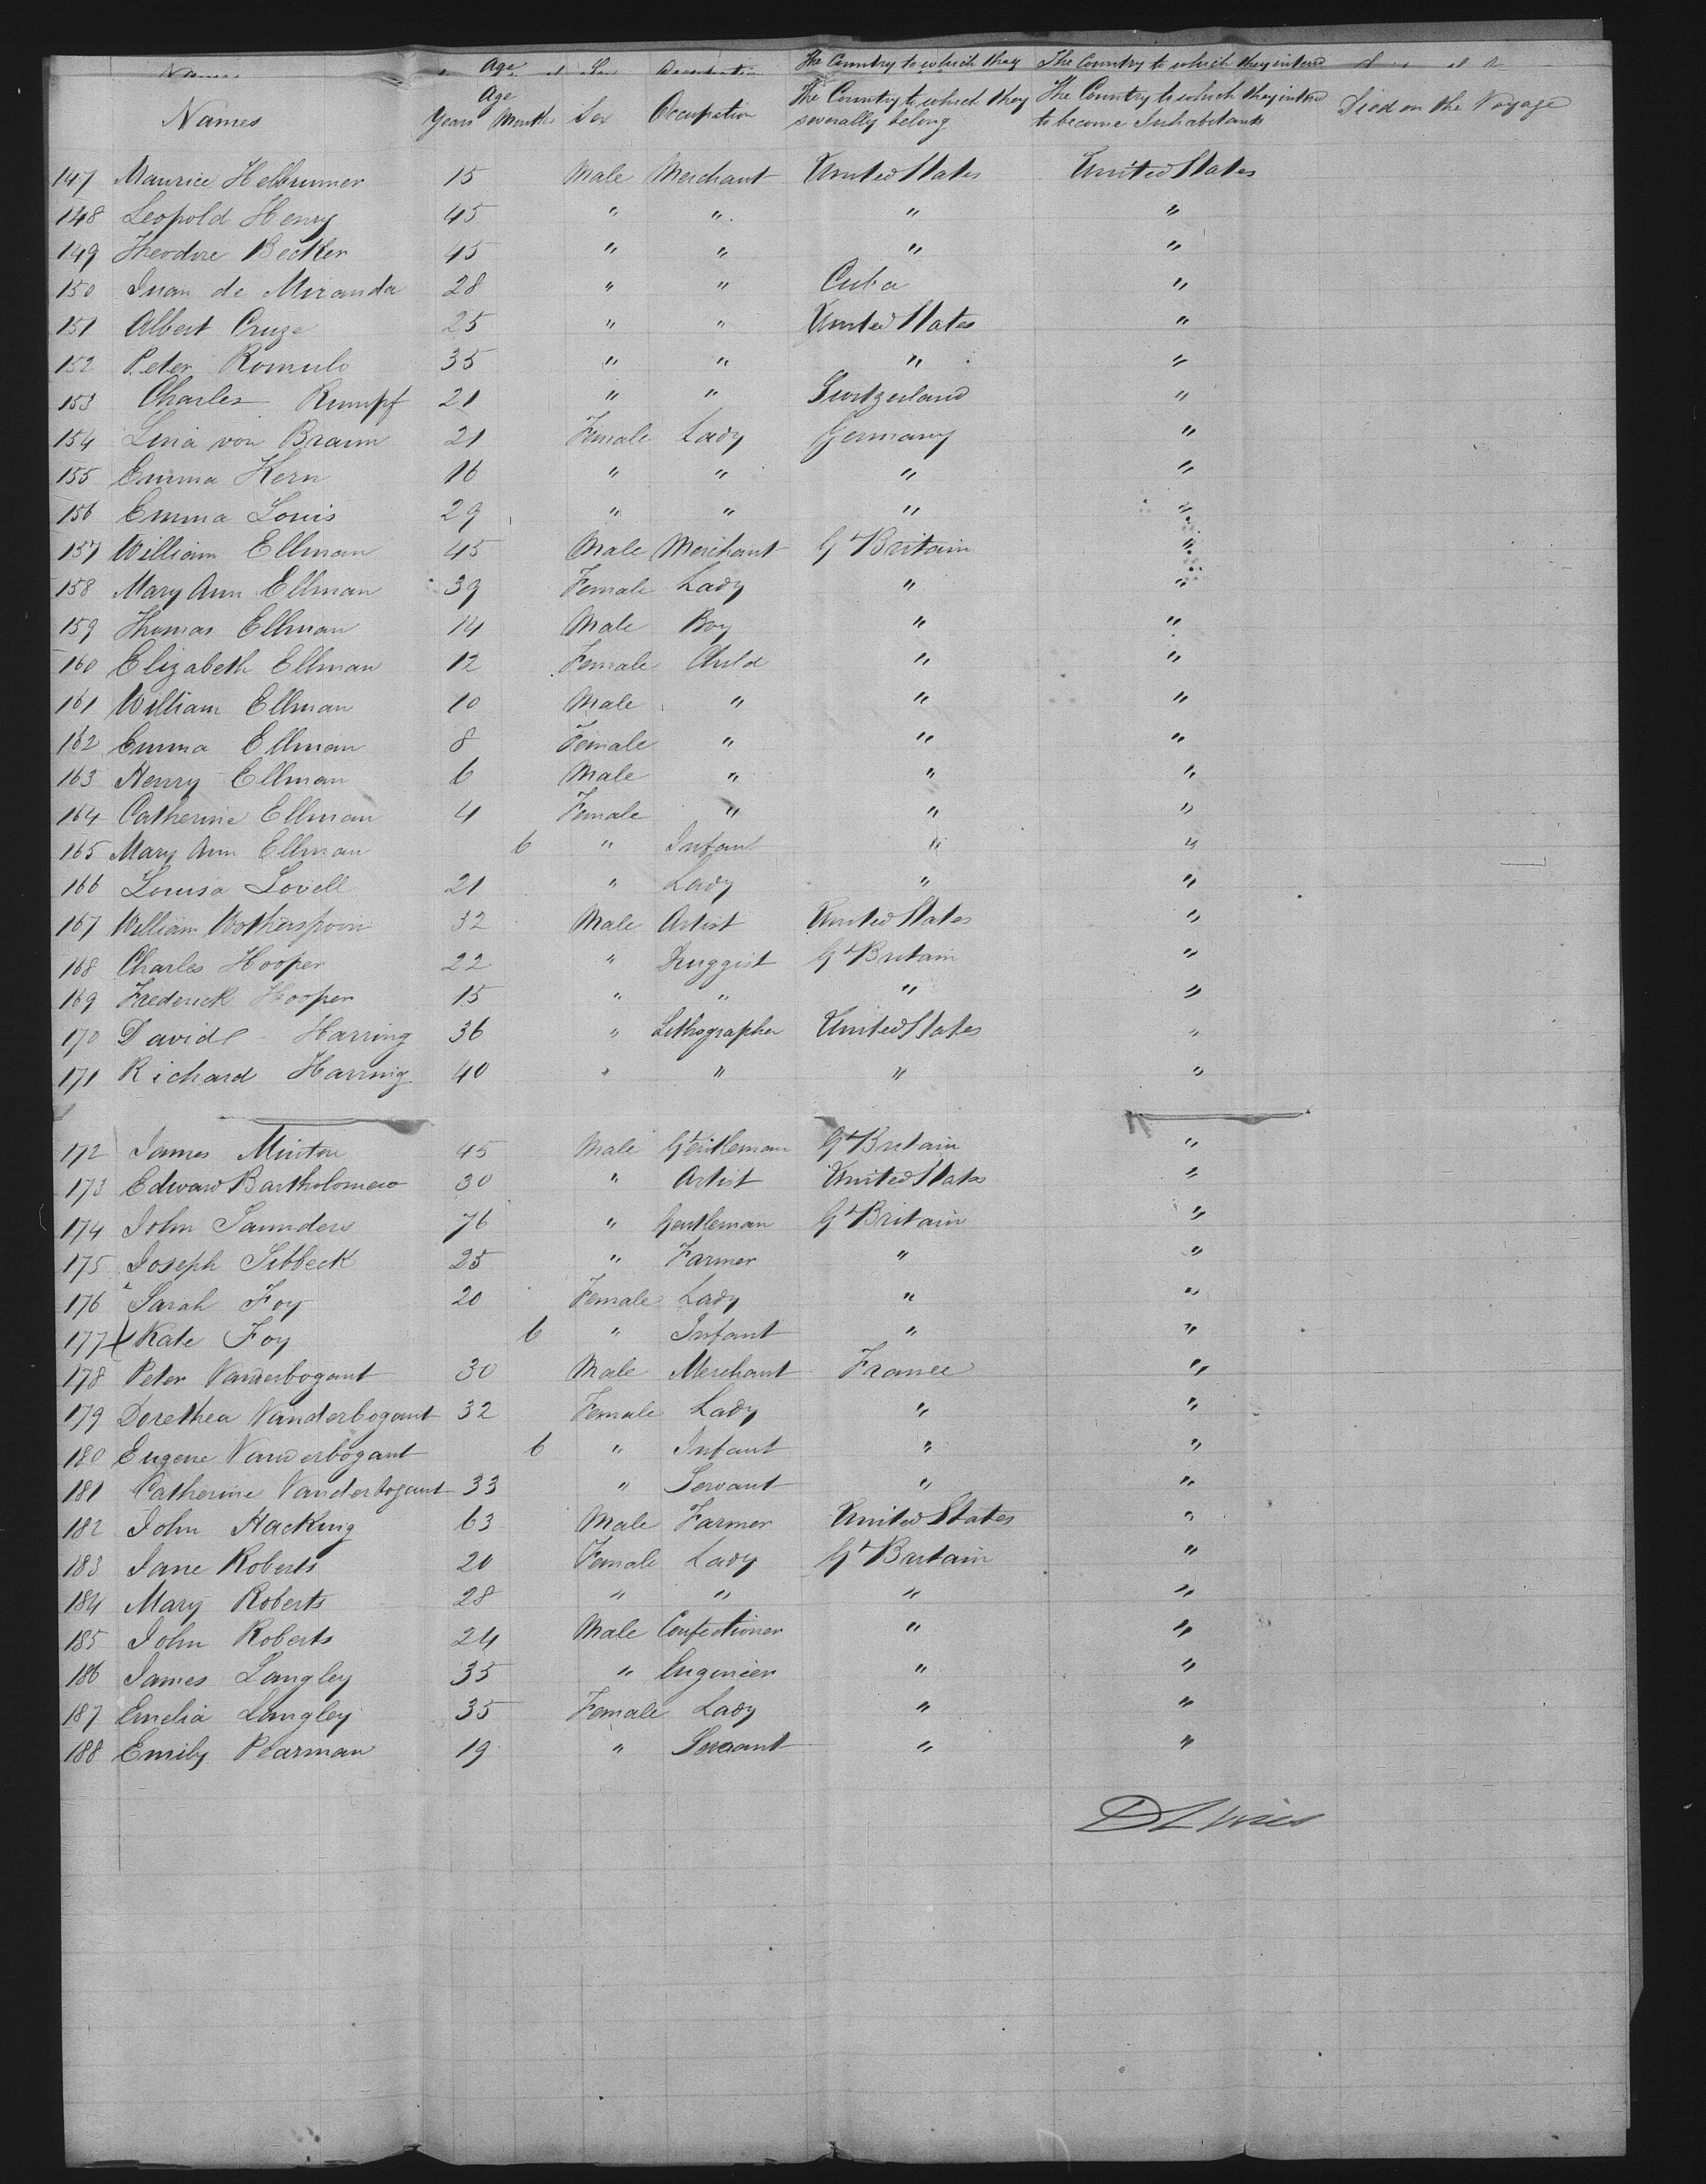 Names Age Years Months Sex Occupation The Country to which they severally belong The Country to which they intend to become Inhabitants Died on the Voyage
147 Maurice Helbrunner 15 Male Merchant United States United States
148 Leopold Henry 45 " " " "
149 Theodore Becker 45 " " " "
150 Juan de Miranda 28 " " Cuba "
151 Albert Cruze 25 " " United States "
152 Peter Romulo 35 " " " "
153 Charles Rumpf 21 " " Switzerland "
154 Lina von Braun 21 Female Lady Germany "
155 Emma Kern 16 " " " "
156 Emma Louis 29 " " " "
157 William Ellman 45 Male Merchant Gt Britain "
158 Mary Ann Ellman 39 Female Lady " "
159 Thomas Ellman 14 Male Boy " "
160 Elizabeth Ellman 12 Female Child " "
161 William Ellman 10 Male " " "
162 Emma Ellman 8 Female " " "
163 Henry Ellman 6 Male " " "
164 Catherine Ellman 4 Female " " "
165 Mary Ann Ellman 6 " Infant " "
166 Louisa Lovell 21 " Lady " "
167 William Wotherspoon 32 Male Artist United States "
168 Charles Hooper 22 " Druggist Gt Britain "
169 Frederick Hooper 15 " " " "
170 David Harring 36 " Lithographer United States "
171 Richard Harring 40 " " " "
172 James Minton 45 Male Gentleman Gt Britain "
173 Edward Bartholomew 30 " Artist United States "
174 John Saunders 76 " Gentleman Gt Britain "
175 Joseph Sibbeck 25 " Farmer " "
176 Sarah Foy 20 Female Lady " "
177 Kate Foy 6 " Infant " "
178 Peter Vanderbogant 30 Male Merchant France "
179 Dorethea Vanderbogant 32 Female Lady " "
180 Eugene Vanderbogant 6 " Infant " "
181 Catherine Vanderbogant 33 " Servant " "
182 John Hacking 63 Male Farmer United States "
183 Jane Roberts 20 Female Lady Gt Britain "
184 Mary Roberts 28 " " " "
185 John Roberts 24 Male Confectioner " "
186 James Langley 35 " Engineer " "
187 Emelia Langley 35 Female Lady " "
188 Emily Pearman 19 " Servant " "